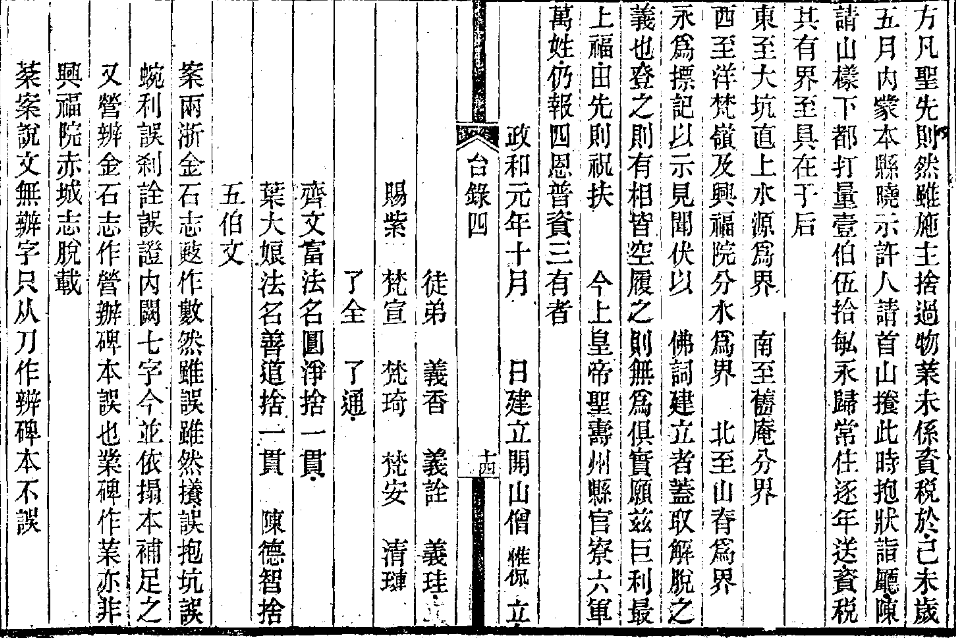 方凡聖先則然雖施主捨過物業未係資稅於己未歲
五月內蒙本縣曉示許人請首山㩲此時抱狀詣廳陳
請山樣下都打量壹伯伍拾畝永歸常住逐年送資稅
其有界至具在于后
東至大坑直上水源爲界　南至舊庵分界
西至洋梵嶺及興福院分水爲界　北至山脊爲界
永爲摽記以示見聞伏以　佛詞建立者蓋取解脫之
義也登之則有相皆空履之則無爲俱實願茲巨利最
上福田先則祝扶　今上皇帝聖壽州縣官寮六軍
萬姓仍報四恩普資三有者
政和元年十月　日建立開山僧惟侃立
台錄四　十四
徒弟　義香　義詮　義珪
賜紫　梵宣　梵琦　梵安　清璉
了全　了通
齊文富法名圓淨捨一貫
葉大娘法名善道捨一貫　陳德智捨
五伯文
案兩浙金石志㪣作數然雖誤雖然㩲誤抱坑誤
蜿利誤刹詮誤證內闕七字今並依搨本補足之
又營辨金石志作營辦碑本誤也業碑作葉亦非
興福院赤城志脫載
棻案說文無辦字只从刀作辨碑本不誤